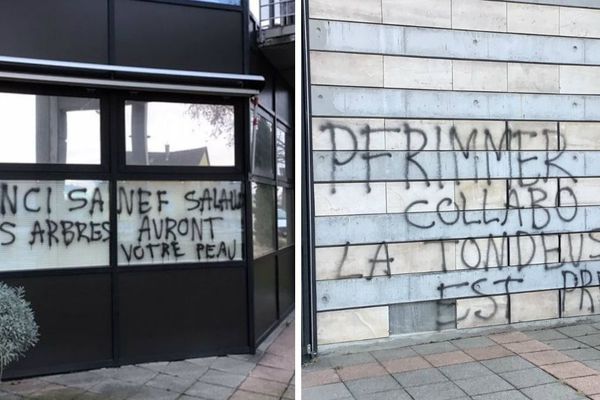 NCI SANEF SALAU
S ARBRES AURONT
VOTRE PEAU
PFRIMMER
COLLABO
LA TONDEUS
EST PR